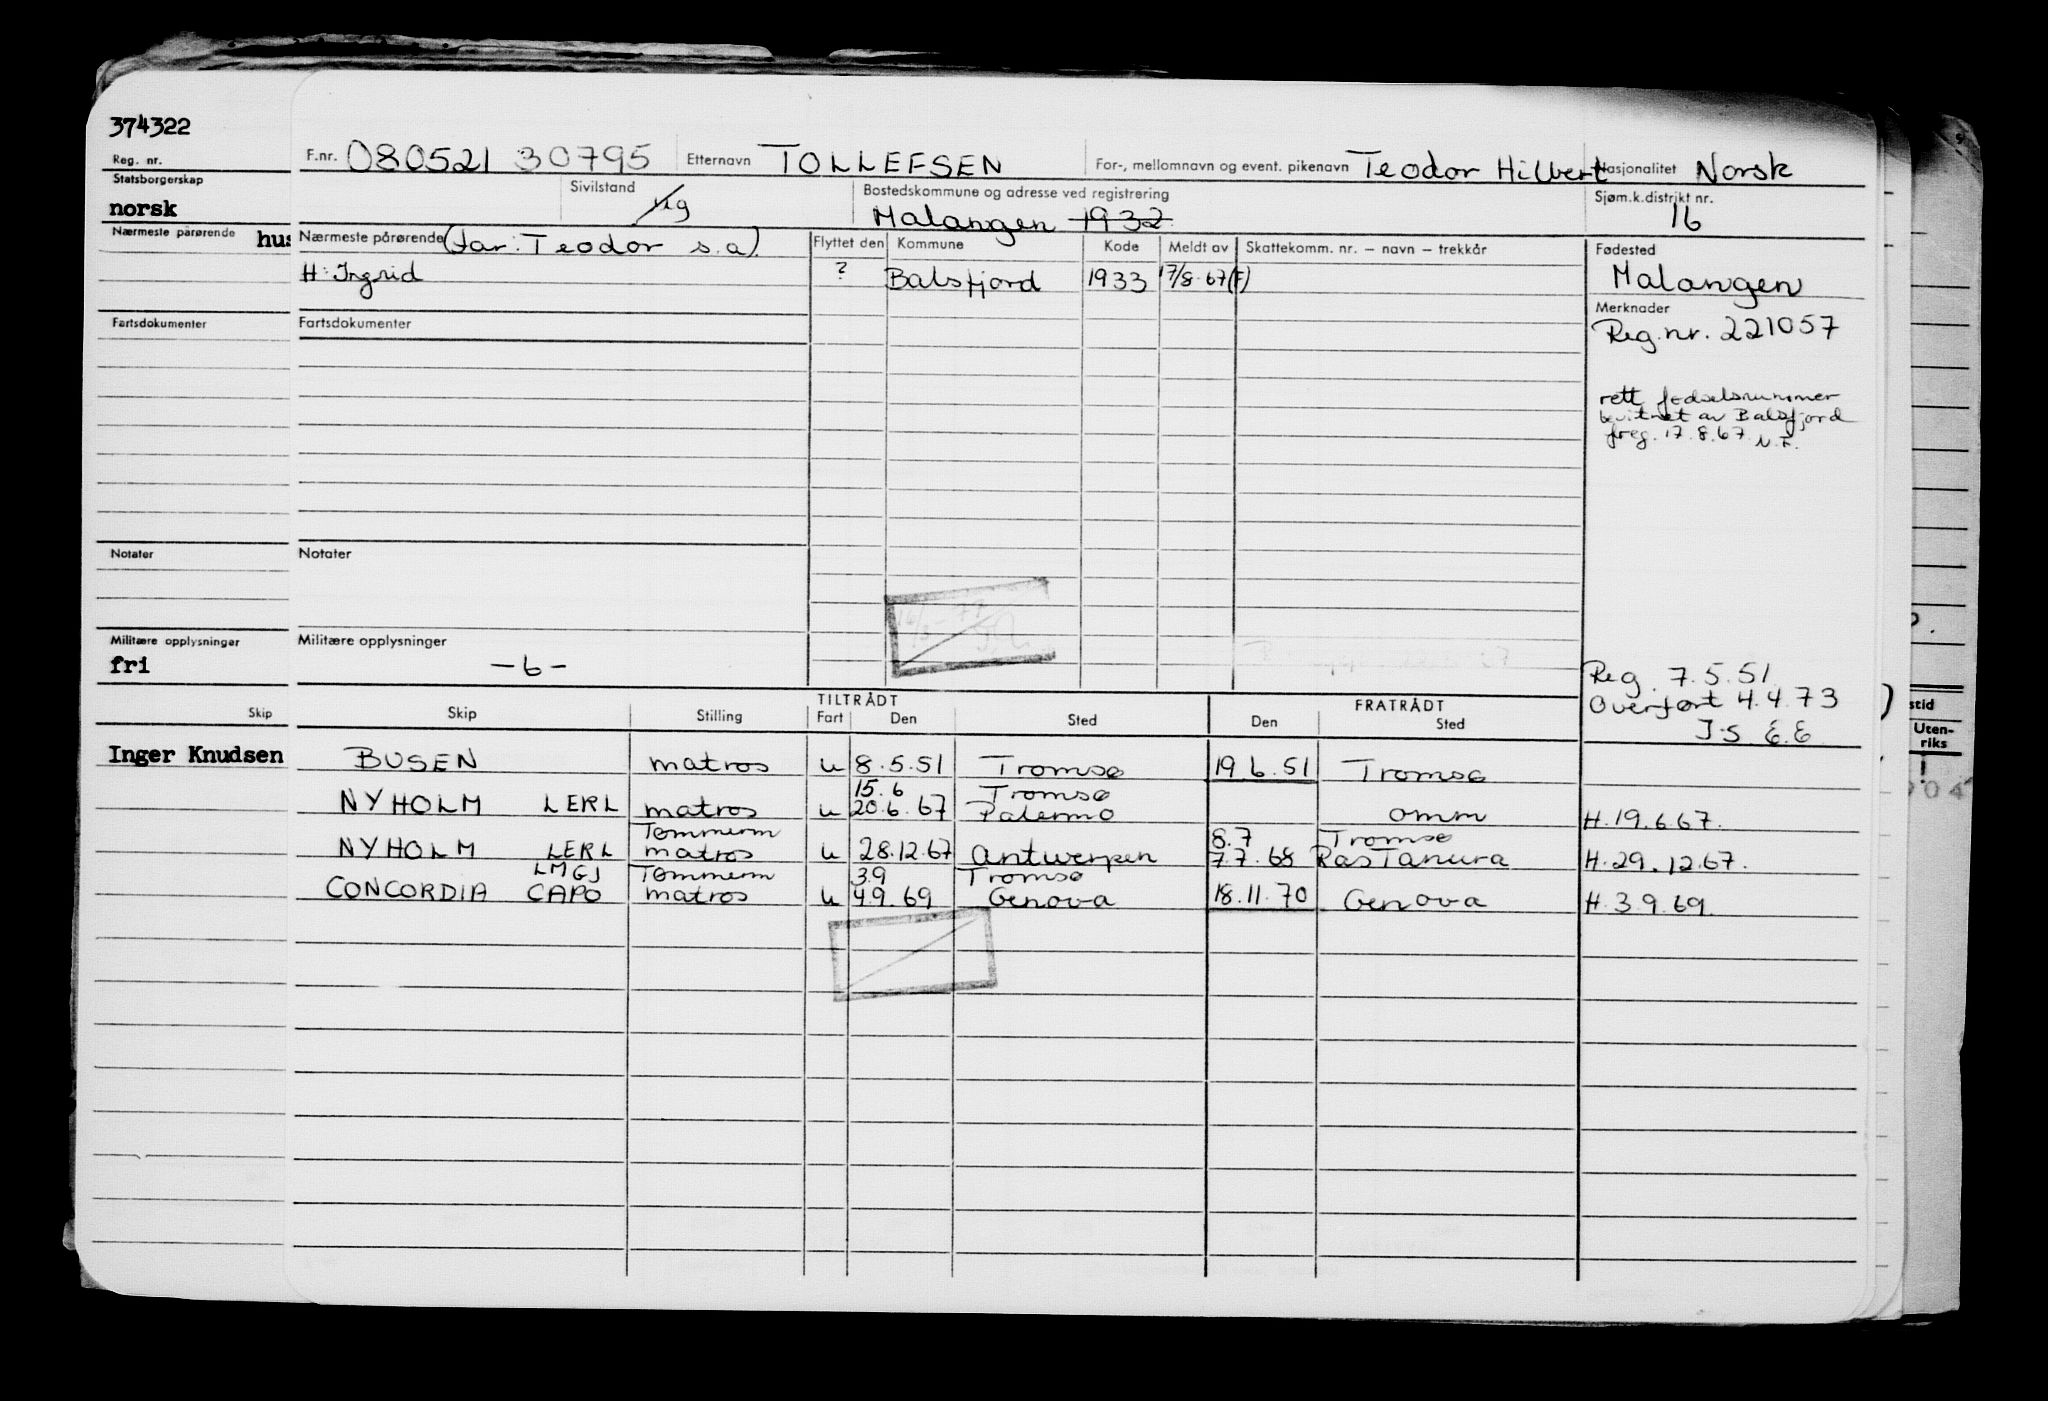 374322
Reg. nr.
Statsborgerskap
norsk
Nærmeste pårørende hus
Fartsdokumenter
Notater
Militære opplysninger
fri
Skip
Inger Knudsen
F.nr. 080521 30795 Etternavn TOLLEFSEN For-, mellomnavn og event. pikenavn Teodor Hilbert Nasjonalitet Norsk
Sivilstand ug Bostedskommune og adresse ved registrering Malangen 1932 Sjøm.k.distrikt nr. 16
Nærmeste pårørende (far: Teodor s.a) Flyttet den Kommune Kode Meldt av Skattekomm. nr. – navn – trekkår Fødested
H: Ingrid ? Balsfjord 1933 17/8-67(F) Malangen
Merknader
Fartsdokumenter Reg.nr. 221057
rett fødselsnummer
bevitnet av Balsfjord
freg. 17.8.67. N.F.
Notater
Militære opplysninger
—6—
Reg. 7.5.51
Overført 4.4.73
J.S E.E
TILTRÅDT FRATRÅDT
Skip Stilling Fart Den Sted Den Sted
BUSEN matros u 8.5.51 Tromsø 19.6.51 Tromsø
15.6 Tromsø
NYHOLM LERL matros u 20.6.67 Palermo omm H.19.6.67.
Tømmerm 8.7 Tromsø
NYHOLM LERL matros u 28.12.67 Antwerpen 7.7.68 RasTanura H.29.12.67.
LMGJ Tømmerm 3.9 Tromsø
CONCORDIA CAPO matros u 4.9.69 Genova 18.11.70 Genova H.3.9.69.
stid
Uten-
riks